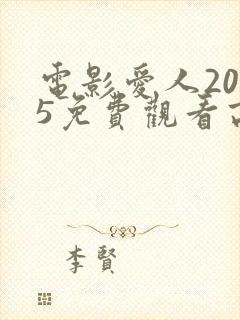 電影愛人20
5免費觀看
李賢